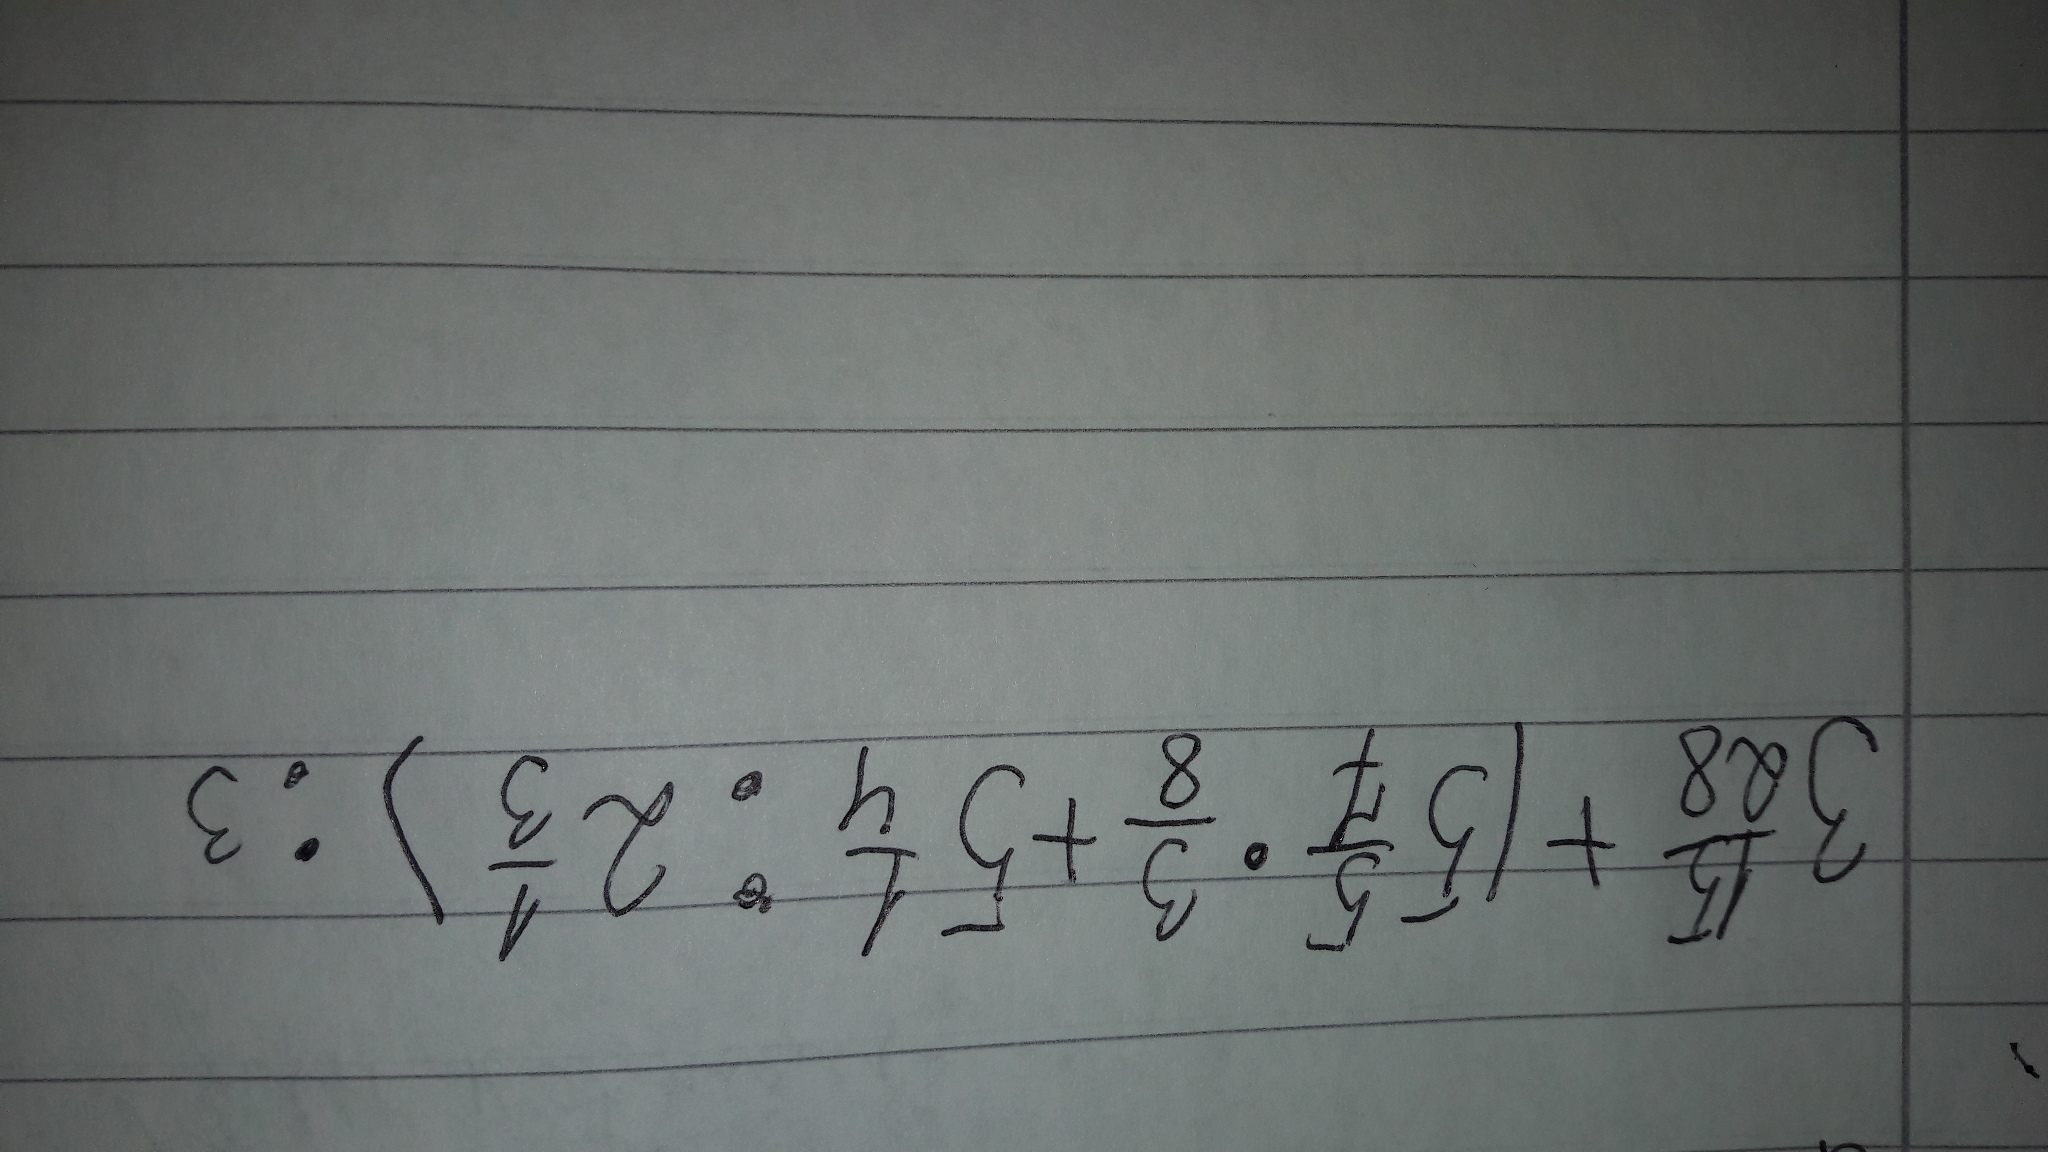 3 15/28 + (5 5/7 · 3/8 + 5 1/4 : 2 1/3) : 3